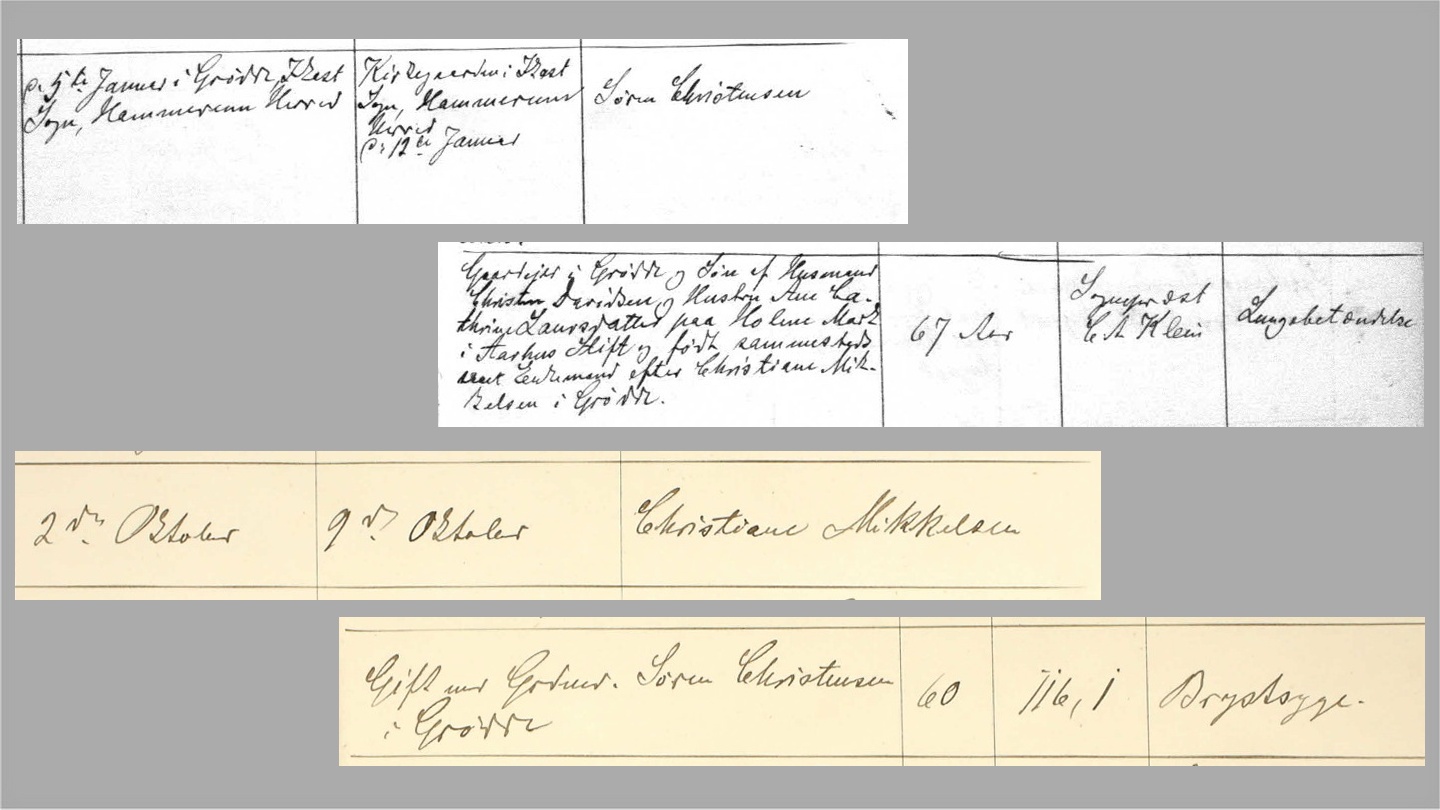 d. 5te Januar i Grødde, Ikast
Sogn, Hammerum Herred
Kirkegaarden i Ikast
Sogn, Hammerum
Herred
d. 12te Januar
Søren Christensen
Gaardejer i Grødde og Søn af Husmand
Christen Davidsen og Hustru Ane Ca-
thrine Laursdatter paa Holme Mark
i Aarhus Stift og født sammesteds
samt Enkemand efter Christiane Mik-
kelsen i Grødde.
67 Aar
Sognepræst
C A Klein
Lungebetændelse
2den Oktober
9d. Oktober
Christiane Mikkelsen
Gift med Grdmd. Søren Christensen
i Grødde
60
116, 1
Brystsyge.